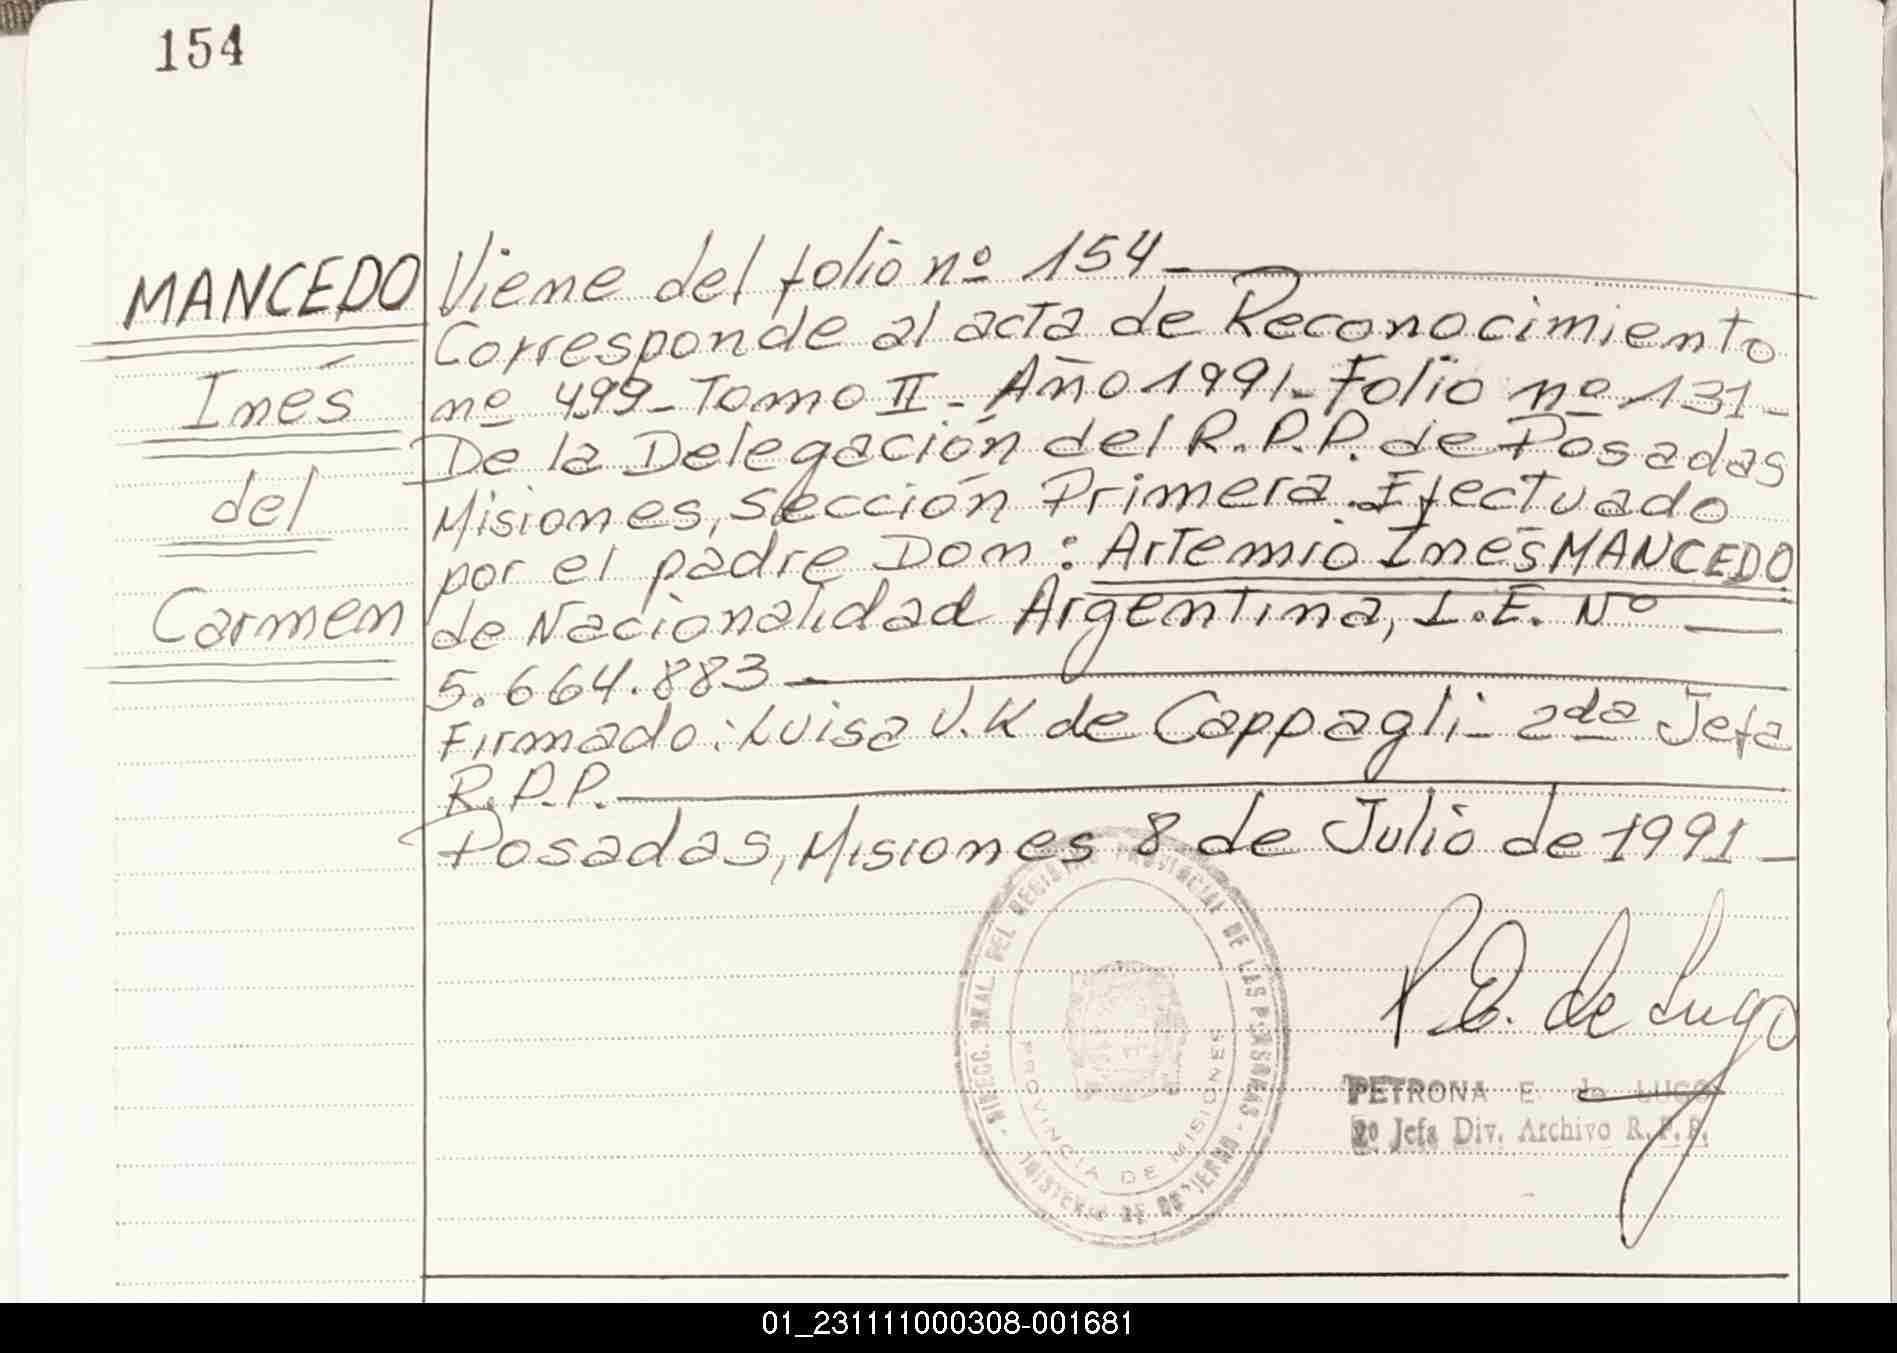 154
MANCEDO
Inés
del
Carmen
Viene del folio nº 154-
Corresponde al acta de Reconocimiento
nº 499- Tomo II - Año 1991- Folio nº 131-
De la Delegación del R.P.P. de Posadas
Misiones, Sección Primera. Efectuado
por el padre Don: Artemio Inés MANCEDO
de Nacionalidad Argentina, L.E. Nº —
5.664.883 —
Firmado: Luisa V.K de Cappagli- 2da Jefa
R.P.P. —
Posadas, Misiones 8 de Julio de 1991-
P.E. de Lugo
PETRONA E de LUGO
2º Jefa Div. Archivo R.P.P.
DEL REGISTRO PROVINCIAL DE LAS PERSONAS
PROVINCIA DE MISIONES
01_231111000308-001681